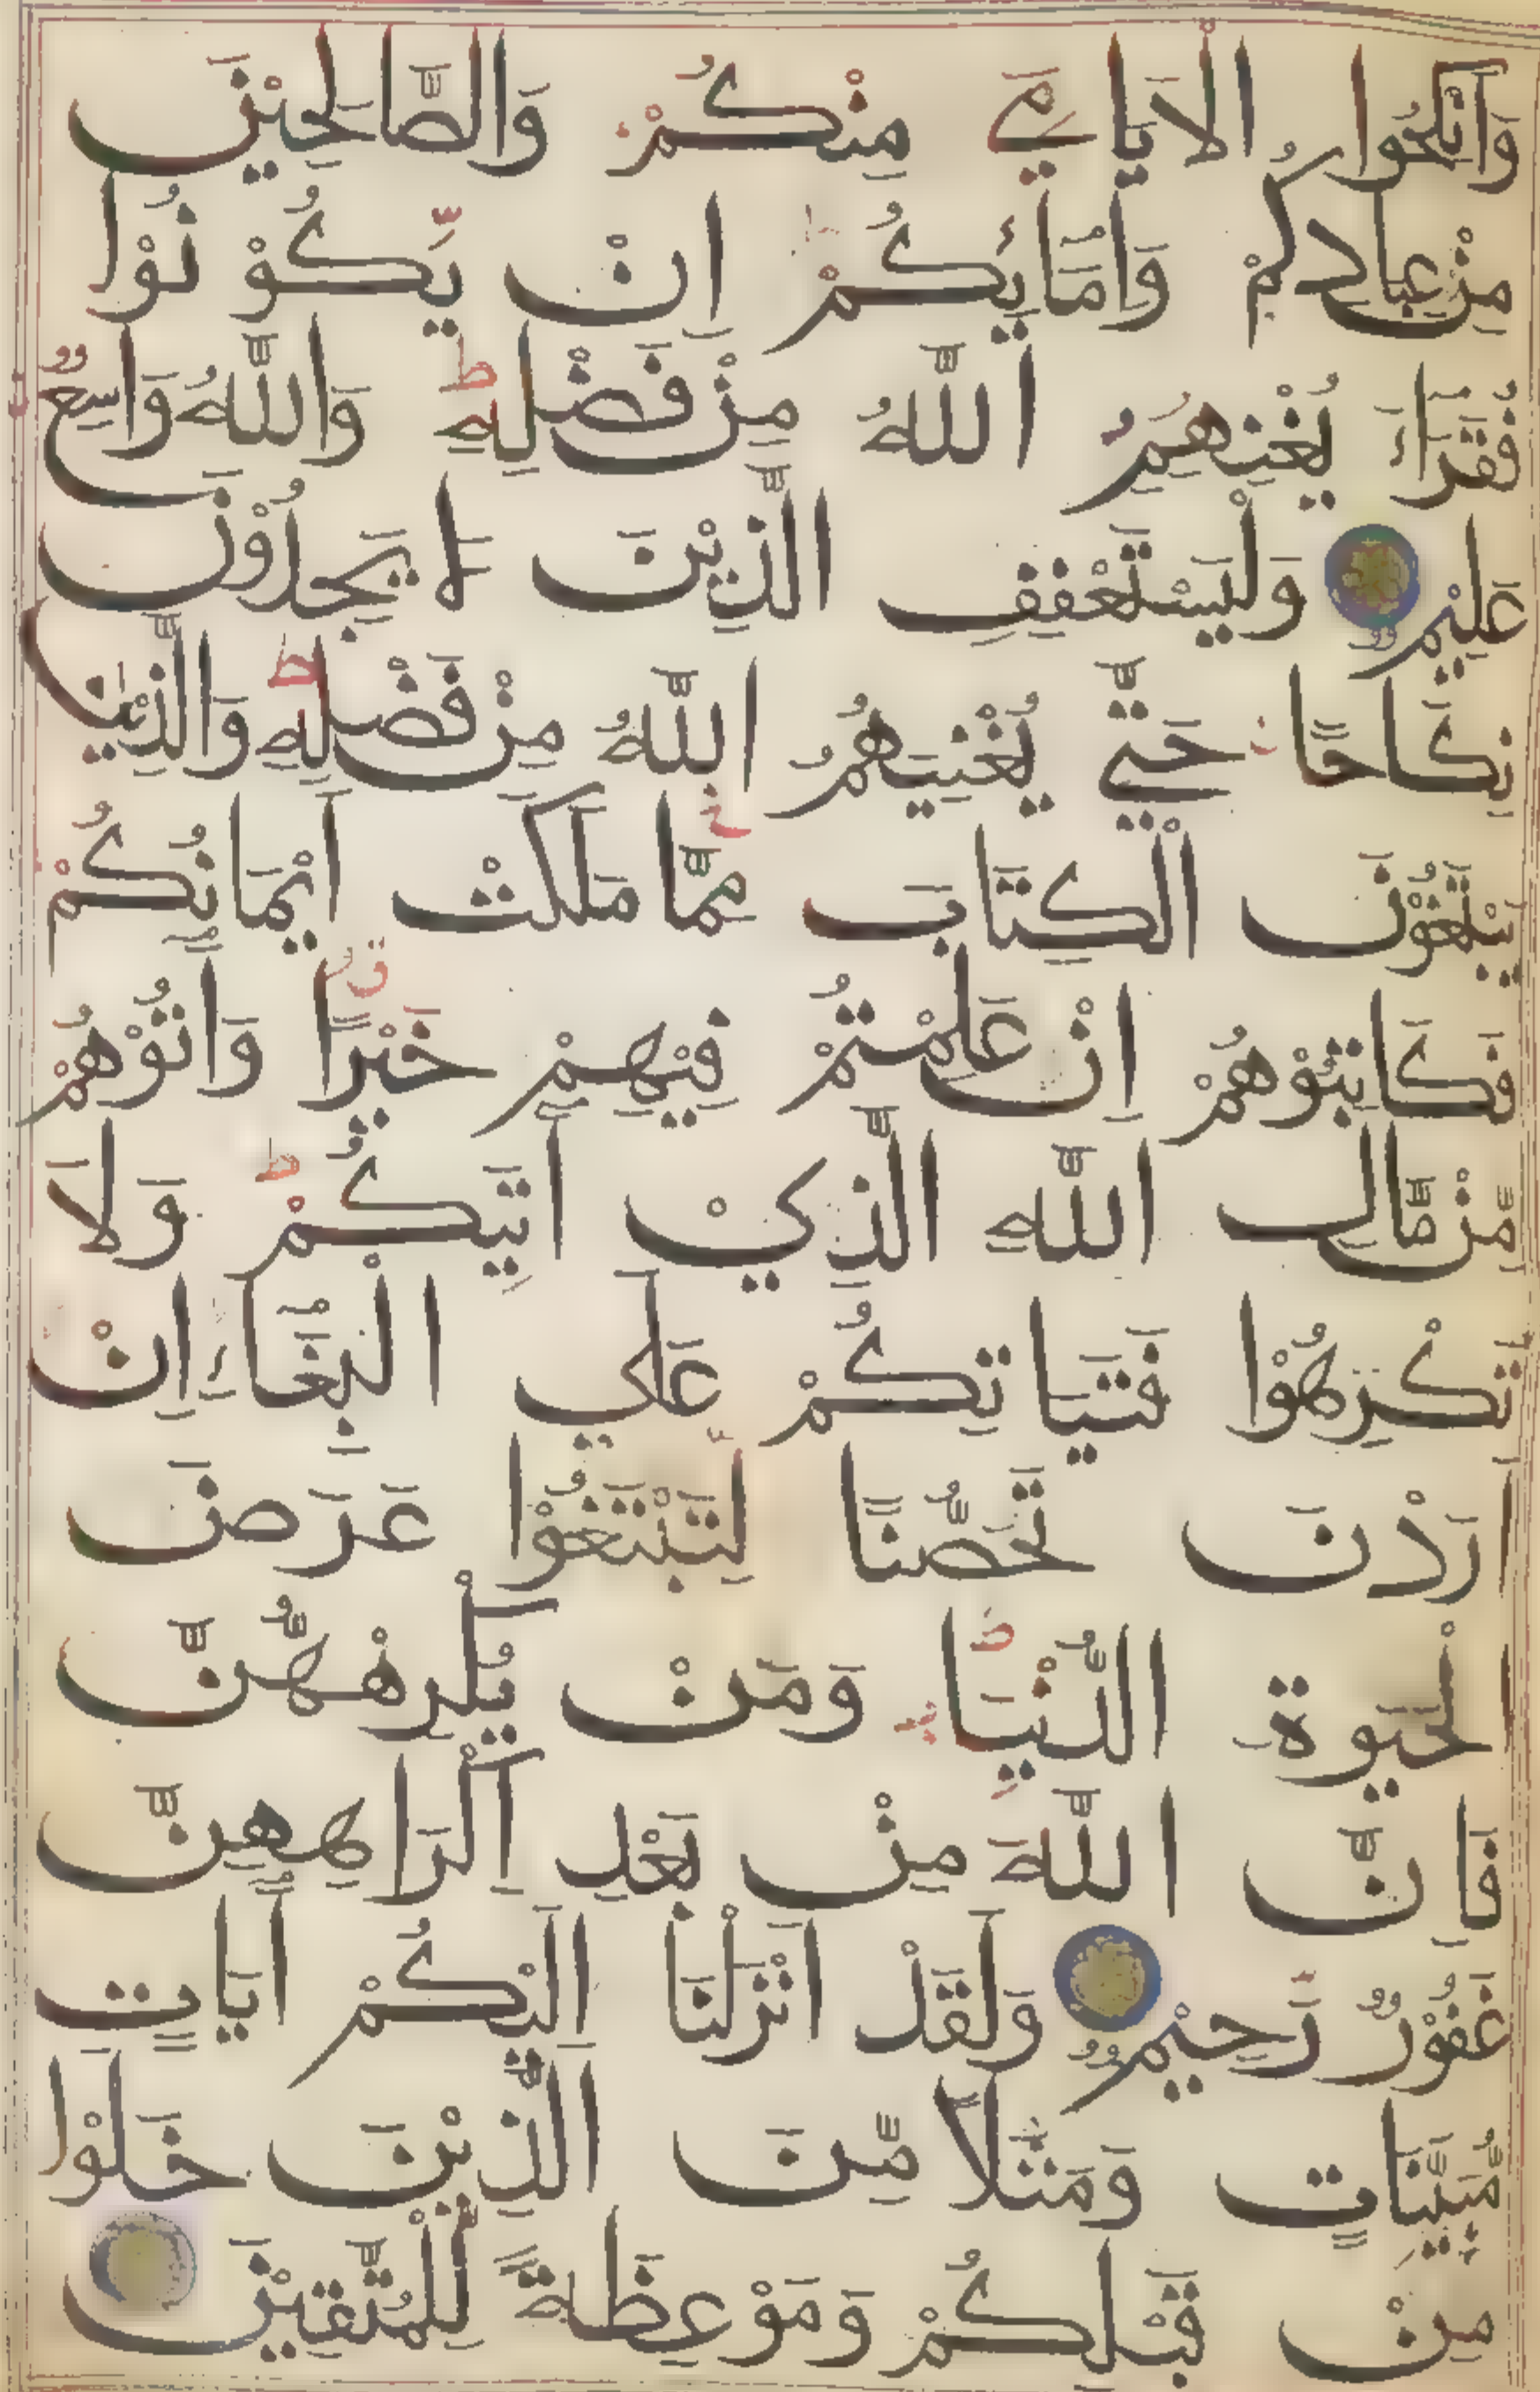 وَانْكِحُوا الْاَيَامٰي مِنْكُمْ وَالصَّالِحِيْنَ
مِنْ عِبَادِكُمْ وَاِمَائِكُمْ اِنْ يَّكُوْنُوْا
فُقَرَاءَ يُغْنِهِمُ اللّٰهُ مِنْ فَضْلِهٖ ط وَاللّٰهُ وَاسِعٌ
عَلِيْمٌ وَلْيَسْتَعْفِفِ الَّذِيْنَ لَا يَجِدُوْنَ
نِكَاحًا حَتّٰي يُغْنِيَهُمُ اللّٰهُ مِنْ فَضْلِهٖ ط وَالَّذِيْنَ
يَبْتَغُوْنَ الْكِتَابَ مِمَّا مَلَكَتْ اَيْمَانُكُمْ
فَكَاتِبُوْهُمْ اِنْ عَلِمْتُمْ فِيْهِمْ خَيْرًا وَاٰتُوْهُمْ
مِّنْ مَّالِ اللّٰهِ الَّذِيْ اٰتٰيكُمْ ط وَلَا
تُكْرِهُوْا فَتَيَاتِكُمْ عَلَي الْبِغَاءِ اِنْ
اَرَدْنَ تَحَصُّنًا لِّتَبْتَغُوْا عَرَضَ
الْحَيٰوةِ الدُّنْيَا ط وَمَنْ يُّكْرِهْهُّنَّ
فَاِنَّ اللّٰهَ مِنْ بَعْدِ اِكْرَاهِهِنَّ
غَفُوْرٌ رَّحِيْمٌ وَلَقَدْ اَنْزَلْنَا اِلَيْكُمْ اٰيَاتٍ
مُّبَيِّنَاتٍ وَمَثَلًا مِّنَ الَّذِيْنَ خَلَوْا
مِنْ قَبْلِكُمْ وَمَوْعِظَةً لِّلْمُتَّقِيْنَ